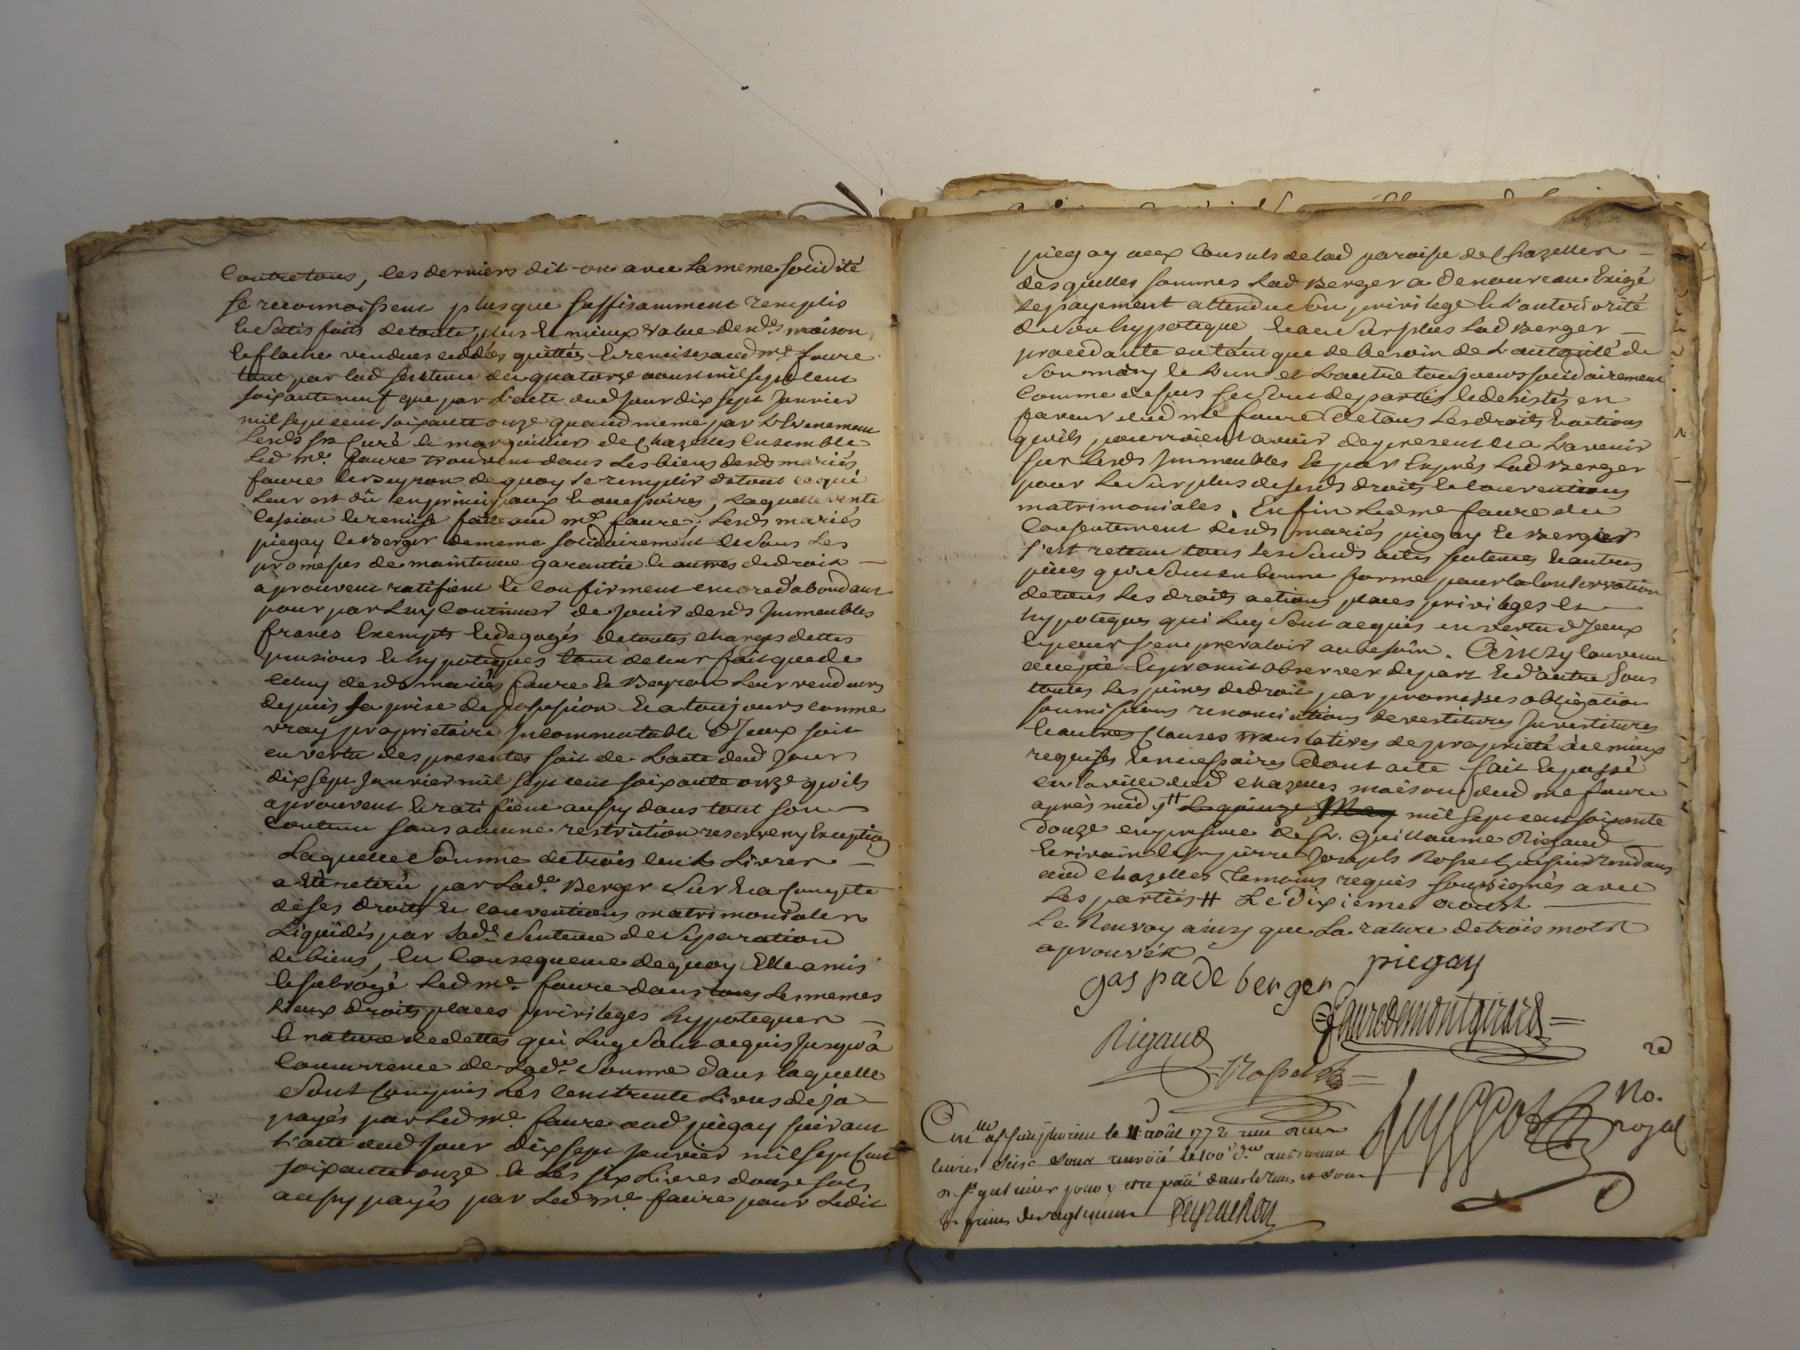 Contre tous, les derniers dit on avec la meme solidité
se reconnoissent plus que suffisamment remplis
et satisfaits de toute plus et mieux value desd.s maison
et flache vendues cedées quittés et remises aud m.e faure
tant par lad sentence du quatorze aoust mil sept cent
soixante neuf que par l'acte dud jour dix sept janvier
mil sept cent soixante onze quand meme par l'evenement
lesds srs curé et marguilliers de Chazelles ensemble
led m.e faure trouvent dans les biens desds mariés
faure et Beyron de quoy se remplir de tout ce qui
leur est dû en principaux et accessoires, Laquelle vente
cession et remise faite aud m.e faure, lesds mariés
piegay et Berger de meme solidairement et sous les
promesses de maintenue garantie et autres de droit
aprouvent ratifient et confirment encore d'abondant
pour par luy continuer de jouir desds immeubles
francs exempts et degagés de toutes charges dettes
pensions et hypoteques tant de leur fait que de
celuy desds mariés faure et Beyron leur vendeurs
depuis sa prise de possession et a toujours comme
vray proprietaire incommutable d'iceux soit
en vertu des presentes soit de l'acte dud jour
dix sept janvier mil sept cent soixante onze qu'ils
aprouvent et ratifient aussy dans tout son
contenu sans aucune restriction reserve ny exception
Laquelle somme de trois cent livres
a eté retiré par lad.e Berger sur et a compte
de ses droits et conventions matrimoniales
liquidés par sad.e sentence de separation
de biens, en consequence de quoy elle a mis
et subrogé led m.e faure dans tous les memes
lieux droits places privileges hypoteques
et nature de dettes qui luy sont acquis jusqu'à
concurrence de lad.e somme dans laquelle
sont compris les cent trente livres deja
payés par led m.e faure aud piegay suivant
l'acte dud jour dix sept janvier mil sept cent
soixante onze et les six livres douze sols
aussy payés par led m.e faure pour ledit
piegay aux consuls de lad paroisse de Chazelles
desquelles sommes lad Berger a de nouveau exigé
le payement attendu son privilege et l'anteriorité
de son hypoteque, et au surplus lad Berger
procedante en tant que de besoin de l'autorité de
son mary le d'un et l'autre toujours solidairement
comme dessus se sont departis et desistés en
faveur dud me faure de tous les droits et actions
qu'ils pourroient avoir de present et a l'avenir
sur lesds immeubles et par exprés lad Berger
pour le surplus de sesds droits et conventions
matrimoniales. Enfin led me faure du
consentement desds mariés piegay et Berger
s'est retenu tous les susds actes sentences et autres
pieces qui sont en bonne forme pour la conservation
de tous les droits actions places privileges et
hypoteques qui luy sont acquis en vertu d'iceux
et pour s'en prevaloir au besoin. Ainsy convenu
accepté et promit observer de part et d'autre sous
toutes les peines de droit par promesses obligation
soumissions renonciations devestitures investitures
et autres clauses translatives de proprieté au mieux
requises et necessaires dont acte fait et passé
en la ville dud chazelles maison dud me faure
après midy # Le quinze May mil sept cent soixante
douze en presence de sr. Guillaume Rigaud
Ecrivain et sr pierre Joseph Rosset residants
aud chazelles temoins requis soussignés avec
les parties # Le dixieme aoust
Le Renvoy ainsy que la rature de trois mots
aprouvés
gaspade berger piegay
Rigaud fauredemontgirard
Rosset
No. royal
le 11 août 1772